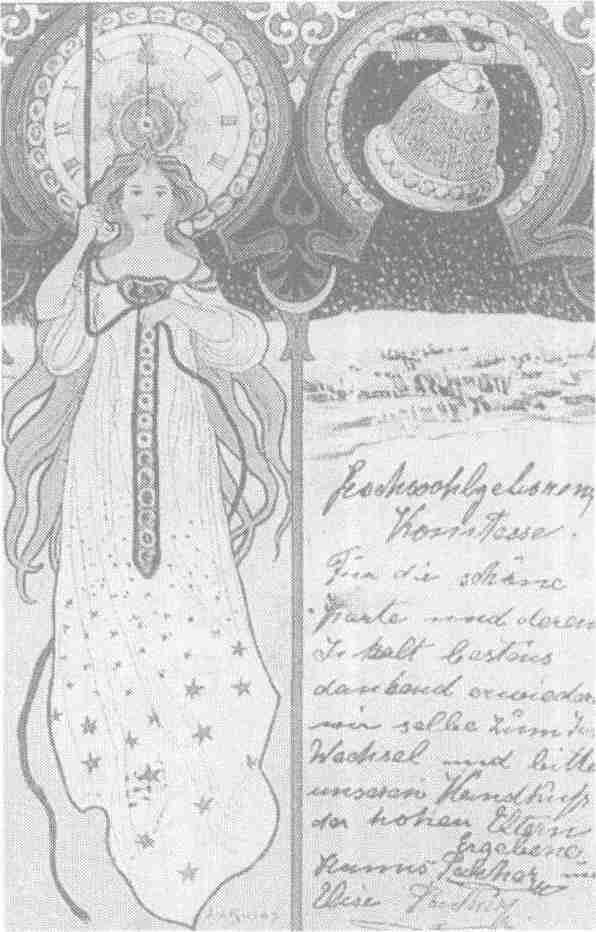 Hochwohlgeborene
Komtesse.
Für die schöne
Karte und deren
Inhalt bestens
dankend erwieder
wir selbe zum
Wechsel und bitte
unseren Handkuß
der hohen Eltern
Ergebene
Elise